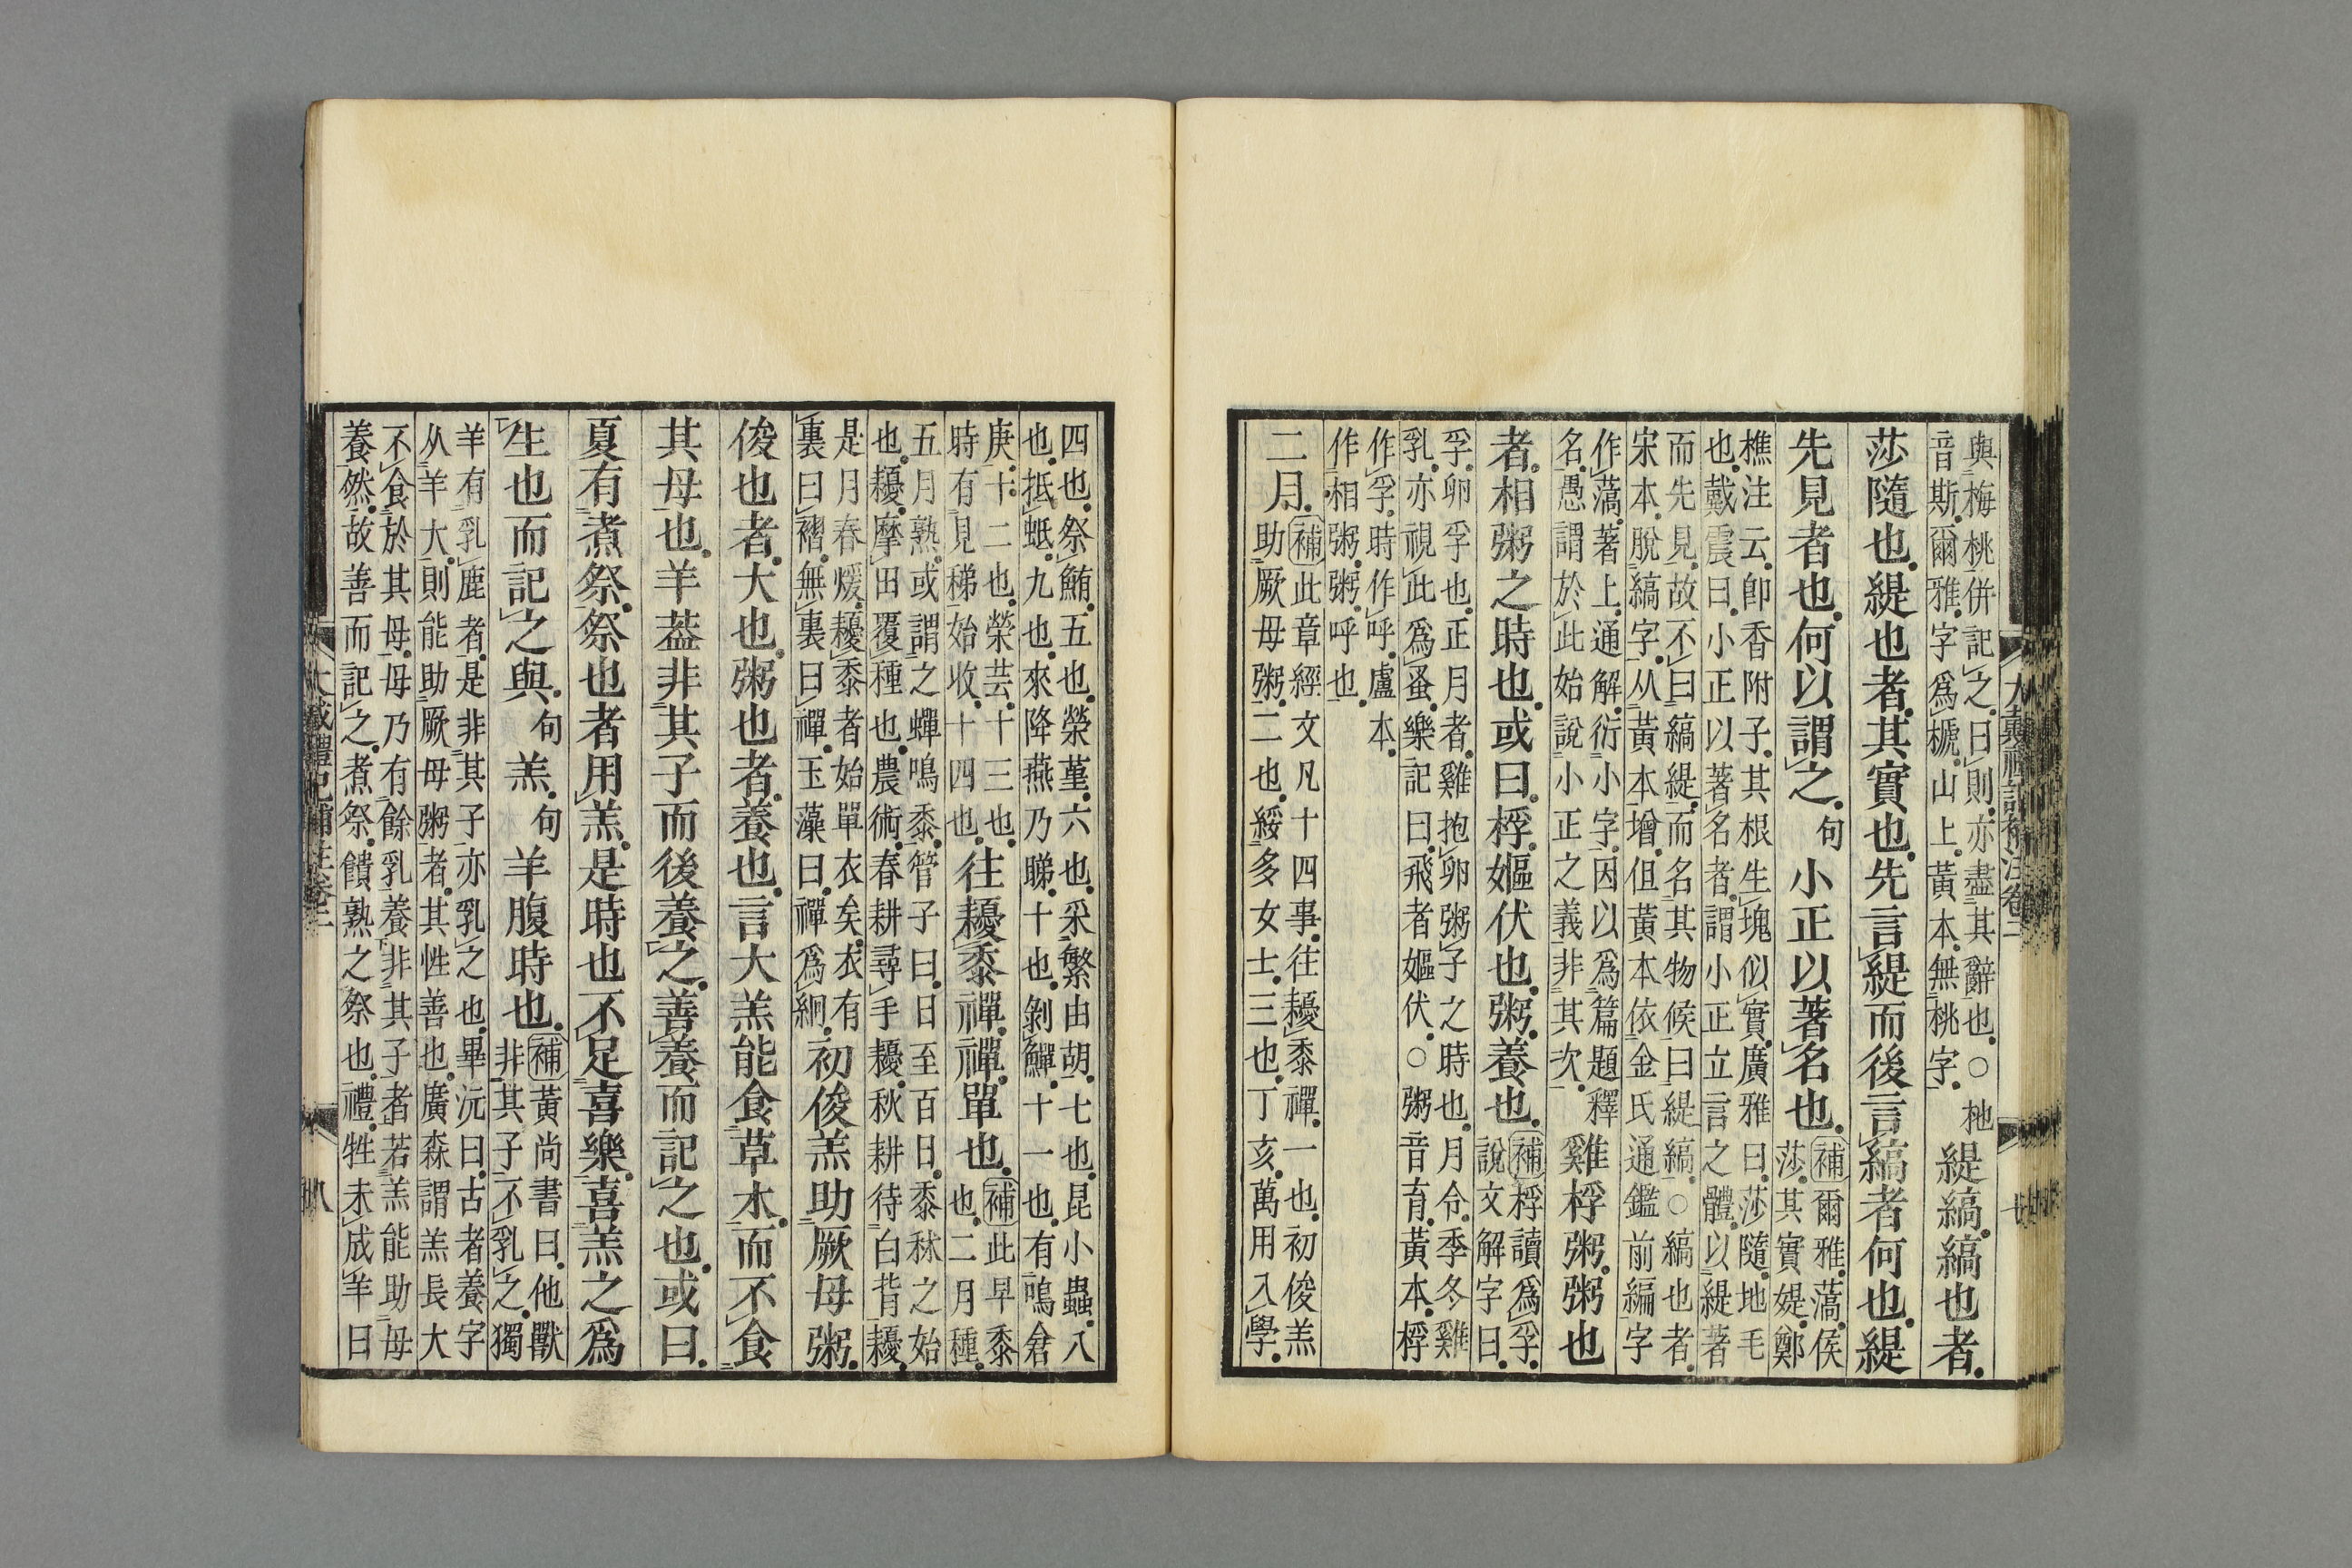 與梅桃併記之日則亦盡其辭也○杝
音斯爾雅字爲榹山上黃本無桃字
緹縞縞也者
莎隨也緹也者其實也先言緹而後言縞者何也緹
先見者也何以謂之句小正以著名也
補爾雅薃侯
莎其實媞鄭
樵注云卽香附子其根生塊似實廣雅曰莎隨地毛
也戴震曰小正以著名者謂小正立言之體以緹著
而先見故不曰縞緹而名其物候曰緹縞○縞也者
宋本脫縞字从黃本增但黃本依金氏通鑑前編字
作薃著上通解衍小字因以爲篇題釋
名愚謂於此始說小正之義非其次
雞桴粥粥也
者相粥之時也或曰桴嫗伏也粥養也
補桴讀爲孚
說文解字曰
孚卵孚也正月者雞抱卵粥子之時也月令季冬雞
乳亦視此爲蚤樂記曰飛者嫗伏○粥音育黃本桴
作孚時作呼盧本
作相粥粥呼也
二月
補此章經文凡十四事往耰黍禪一也初俊羔
助厥母粥二也綏多女士三也丁亥萬用入學
大戴禮記補注卷二
四也祭鮪五也榮堇六也采蘩由胡七也昆小蟲八
也抵蚳九也來降燕乃睇十也剝鱓十一也有鳴倉
庚十二也榮芸十三也
時有見稊始收十四也
往耰黍禪禪單也
補此早黍
也二月種
五月熟或謂之蟬鳴黍管子曰日至百日黍秫之始
也耰摩田覆種也農術春耕尋手耰秋耕待白背耰
是月春煖耰黍者始單衣矣衣有
裏曰褶無裏曰禪玉藻曰禪爲絅
初俊羔助厥母粥
俊也者大也粥也者養也言大羔能食草木而不食
其母也羊葢非其子而後養之善養而記之也或曰
夏有煮祭祭也者用羔是時也不足喜樂喜羔之爲
生也而記之與句羔句羊腹時也
補黃尚書曰他獸
非其子不乳之獨
羊有乳鹿者是非其子亦乳之也畢沅曰古者養字
从羊大則能助厥母粥者其性善也廣森謂羔長大
不食於其母母乃有餘乳養非其子者若羔能助母
養然故善而記之煮祭饋熟之祭也禮牲未成羊曰
大戴禮記補注卷二
八